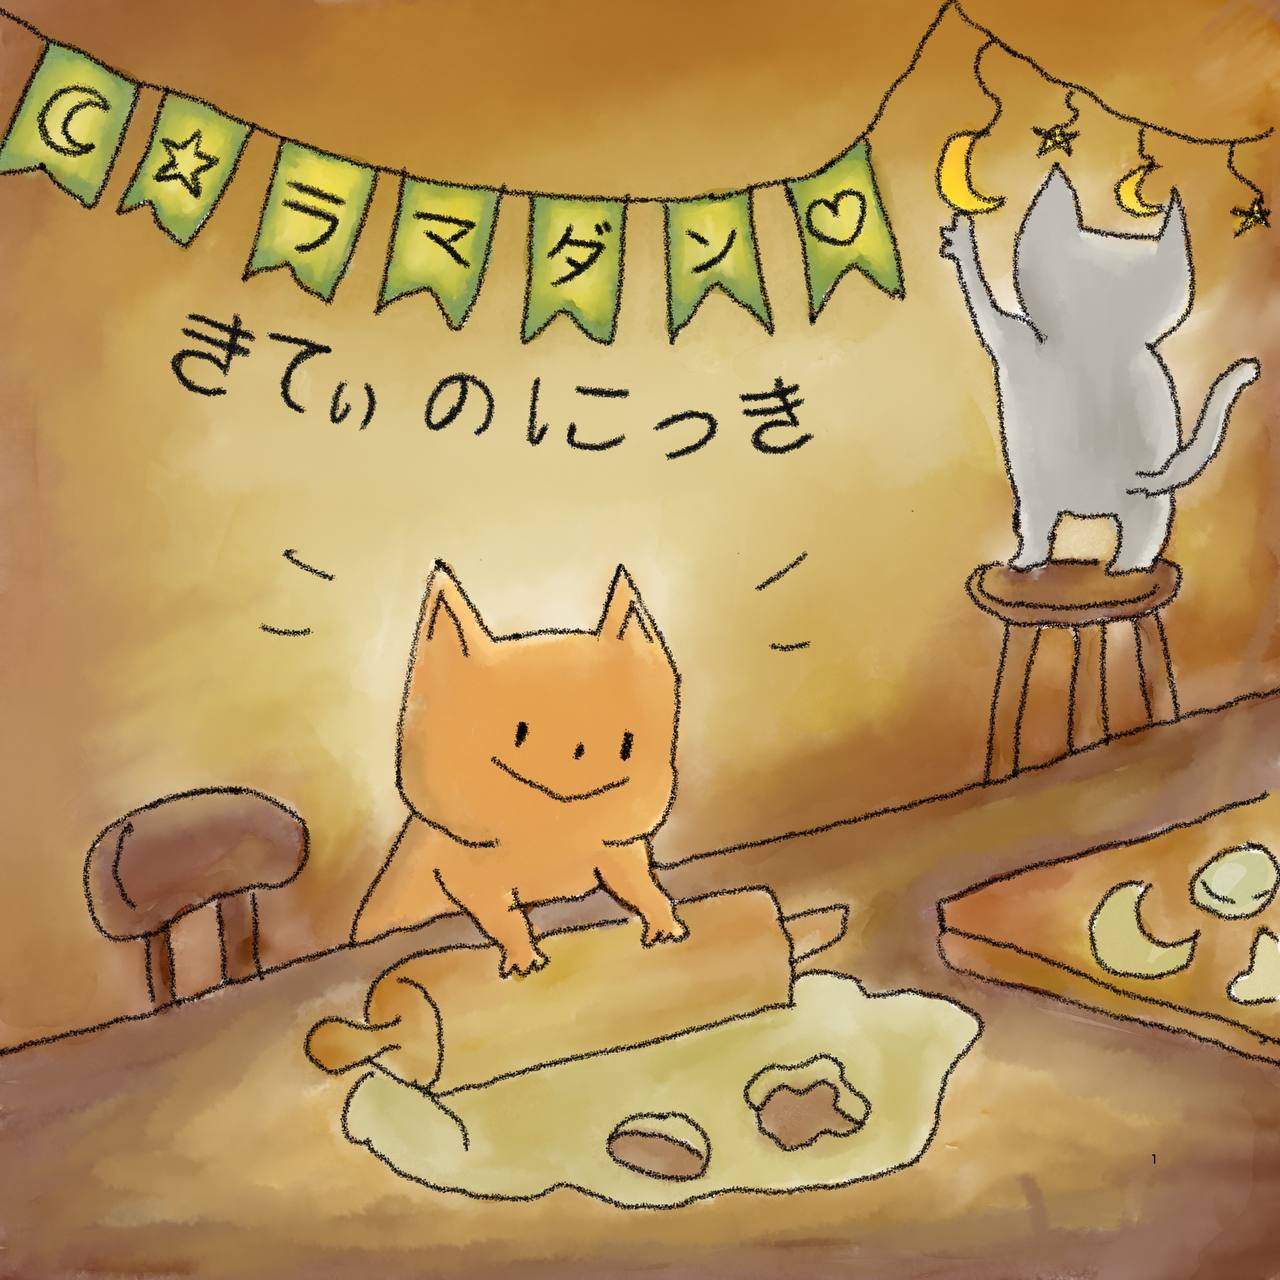 ラマダン
きてぃ の にっき
1